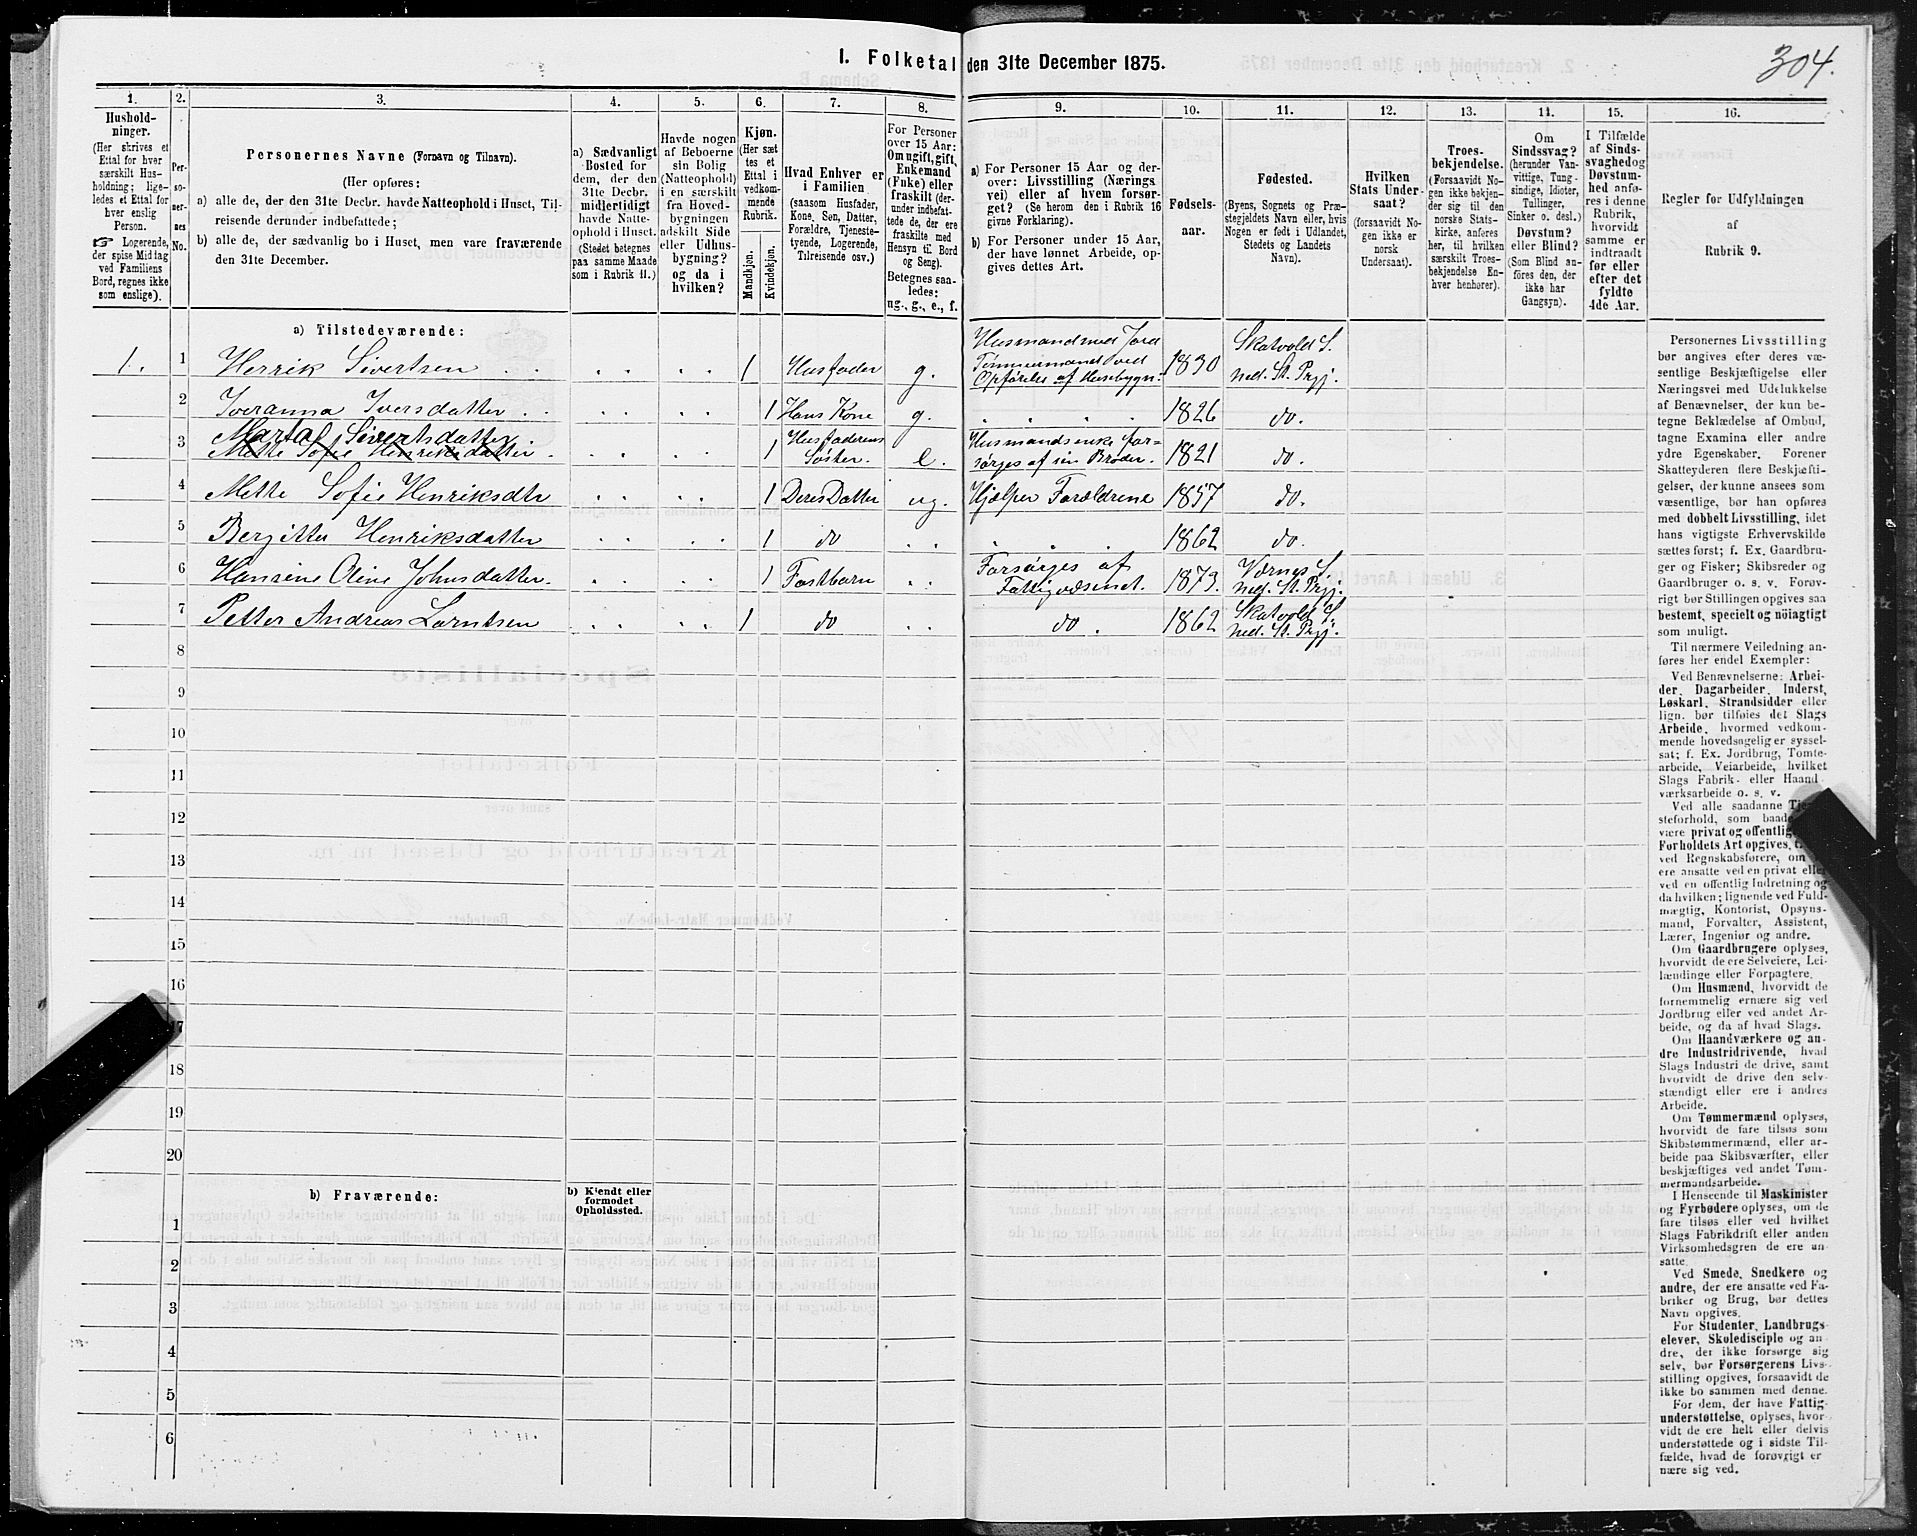 304.
1. Folketal den 31te December 1875.
1.
Hushold-
ninger.
(Her skrives et
Ettal for hver
særskilt Hus-
holdning; lige-
ledes et Ettal for
hver enslig
Person.
☞ Logerende,
der spise Middag
ved Familiens
Bord, regnes ikke
som enslige).
2.
Per-
so-
ner-
nes
No.
3.
Personernes Navne (Fornavn og Tilnavn).
(Her opføres:
a) alle de, der den 31te Decbr. havde Natteophold i Huset, Til-
reisende derunder indbefattede;
b) alle de, der sædvanlig bo i Huset, men vare fraværende
den 31te December.
4.
a) Sædvanligt
Bosted for
dem, der den
31te Decbr.
midlertidigt
havde Natte-
ophold i Huset.
(Stedet betegnes
paa samme Maade
som i Rubrik 11.)
5.
Havde nogen
af Beboerne
sin Bolig
(Natteophold)
i en særskilt
fra Hoved-
bygningen
adskilt Side
eller Udhus-
bygning?
og da i
hvilken?
6.
Kjøn.
(Her sæt
tes et
Ettal i
vedkom-
mende
Rubrik.
Mandkjøn.
Kvindekjøn.
7.
Hvad Enhver er
i Familien
(saasom Husfader,
Kone, Søn, Datter,
Forældre, Tjeneste-
tyende, Logerende,
Tilreisende osv.)
8.
For Personer
over 15 Aar:
Om ugift, gift,
Enkemand
(Enke) eller
fraskilt (der-
under indbefat-
tede de, der ere
fraskilte med
Hensyn til Bord
og Seng).
Betegnes saa-
ledes:
ug., g., e., f.
9.
a) For Personer 15 Aar og der-
over: Livsstilling (Nærings
vei) eller af hvem forsør-
get? (Se herom den i Rubrik 16
givne Forklaring).
b) For Personer under 15 Aar,
der have lønnet Arbeide, op-
gives dettes Art.
10.
Fødsels-
aar.
11.
Fødested.
(Byens, Sognets og Præ-
stegjeldets Navn eller, hvis
Nogen er født i Udlandet,
Stedets og Landets
Navn).
12.
Hvilken
Stats Under-
saat?
(forsaavidt No-
gen ikke er
norsk
Undersaat).
13.
Troes-
bekjendelse.
(Forsaavidt No-
gen ikke bekjen-
der sig til den
norske Stats-
kirke, anføres
her, til hvilken
særskilt Troes-
bekjendelse En-
hver henhører).
14.
Om
Sindssvag?
(herunder Van-
vittige, Tung-
sindige, Idioter,
Tullinger,
Sinker o. desl.)
Døvstum?
eller Blind?
(Som Blind an-
føres den, der
ikke har
Gangsyn).
15.
I Tilfælde
af Sinds-
svaghed og
Døvstum-
hed anfø-
res i denne
Rubrik,
hvorvidt
samme er
indtraadt
før eller
efter det
fyldte
4de Aar.
16.
Regler for Udfyldningen
af
Rubrik 9.
a) Tilstedeværende:
1. 1 Henrik Sivertsen . . . . . . 1 Husfader g. Husmand med Jord Tømmermand ved Opførelse af Husebygn. 1830 Skatvold S. Ned. St. Prgj.
2 Iveranna Iversdatter . . . . . . 1 Hans Kone g. . . . . 1826 do.
3 Marta Sivertsdatter
Mette Sofie Henriksdatter . . . . . 1 Husfaderens Søster. e. Husmandsenke for= sørges af sin Broder. 1821 do.
4 Mette Sofie Henriksdtr . . . . 1 Deres Datter ug. Hjælper Forældrene 1857 do.
5 Bergitte Henriksdatter . . . . 1 do . . . . . 1862 do.
6 Hansine Oline Johnsdatter . . . . 1 Fostbarn . . Forsørges af Fattigvæsenet. 1873. Værnes S. Ned. St. Prgj.
7 Petter Andreas Lorntsen . . . . 1 do . . do . 1862 Skatvold S. Ned. St. Prgj.
8
9
10
11
12
13
14
15
16
17
18
19
20
b) Fraværende:
b) Kjendt eller
formodet
Opholdssted.
1
2
3
4
5
6
Personernes Livsstilling
bør angives efter deres væ-
sentlige Beskjæftigelse eller
Næringsvei med Udelukkelse
af Benævnelser, der kun be-
tegne Beklædelse af Ombud,
tagne Examina eller andre
ydre Egenskaber. Forener
Skatteyderen flere Beskjæfti-
gelser, der kunne ansees som
væsentlige, bør han opføres
med dobbelt Livsstilling, idet
hans vigtigste Erhvervskilde
sættes først; f. Ex. Gaardbru-
ger og Fisker; Skibsreder og
Gaardbruger o. s. v. Forøv-
rigt bør Stillingen opgives saa
bestemt, specielt og nöiagtigt
som muligt.
Til nærmere Veiledning an-
føres her endel Exempler:
Ved Benævnelserne: Arbei-
der, Dagarbeider, Inderst,
Løskarl, Strandsidder eller
lign. bør tilføies det Slags
Arbeide, hvormed vedkom-
mende hovedsagelig er syssel-
sat; f. Ex. Jordbrug, Tomte-
arbeide, Veiarbeide, hvilket
Slags Fabrik- eller Haand
værksarbeide o. s. v.
Ved alle saadanne
steforhold, som
være privat og offentlig
Forholdets Art opgives,
ved Regnskabsførere, om
ere ansatte ved en privat
ved en offentlig Indretning og
da hvilken; lignende ved Fuld-
mægtig, Kontorist, Opsyns-
mand, Forvalter, Assistent,
Lærer, Ingeniør og andre.
Om Gaardbrugere oplyses,
hvorvidt de ere Selveiere, Lei-
lændinge eller Forpagtere.
Om Husmænd, hvorvidt de
fornemmelig ernære sig ved
Jordbrug eller ved andet Ar-
beide, og da af hvad Slags.
Om Haandværkere og an-
dre Industridrivende, hvad
Slags Industri de drive, samt
hvorvidt de drive den selv-
stændigt eller ere i andres
Arbeide.
Om Tømmermænd oplyses,
hvorvidt de fare tilsøs som
Skibstømmermænd, eller ar-
beide paa Skibsværfter, eller
beskjæftiges ved andet Tøm-
mermandsarbeide.
I Henseende til Maskinister
og Fyrbødere oplyses, om de
fare tilsøs eller ved hvilket
Slags Fabrikdrift eller anden
Virksomhedsgren de ere an-
satte.
Ved Smede, Snedkere og
andre, der ere ansatte ved Fa-
briker og Brug, bør dettes
Navn opgives.
For Studenter, Landbrugs-
elever, Skoledisciple og an-
dre, der ikke forsørge sig
selv, bør Forsørgerens Livs-
stilling opgives, forsaavidt de
ikke bo sammen med denne.
For dem, der have Fattig-
understøttelse, oplyses, hvor-
vidt de ere helt eller delvis
understøttede og i sidste Til-
fælde, hvad de forøvrigt er
nære sig ved.